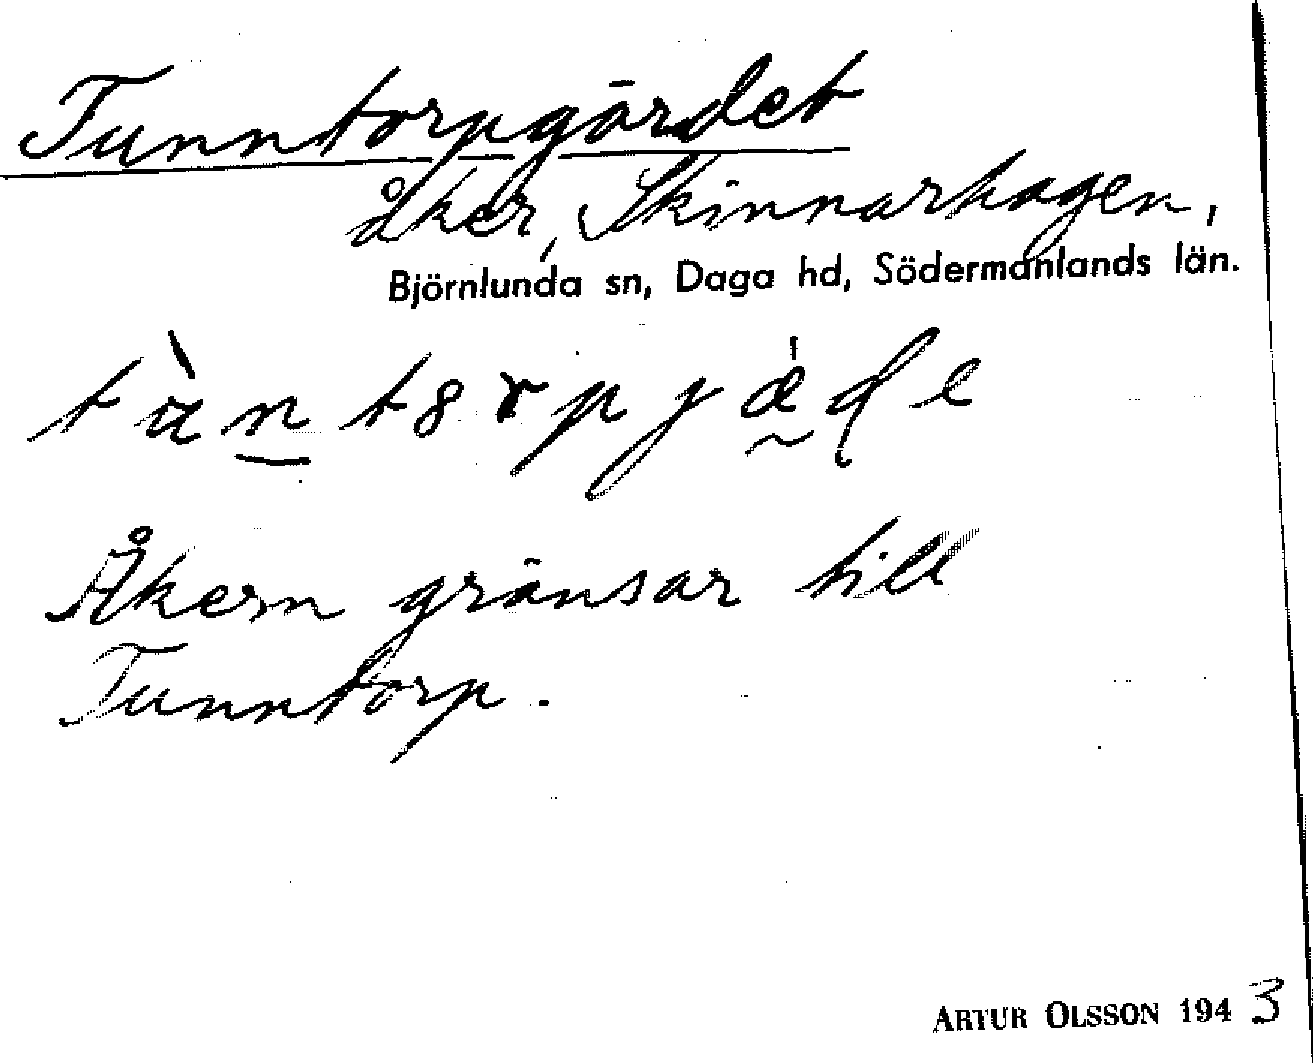 Tunntorpgärdet
åker, Skinnarhagen,
Björnlunda sn, Daga hd, Södermanlands län.
Åkern gränsar till
Tunntorp.
ARTUR OLSSON 1943